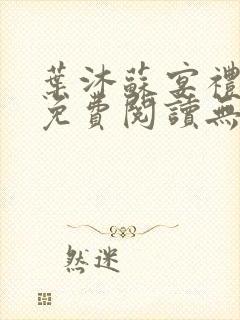 葉沐蘇宴禮
免費閱讀無
然迷